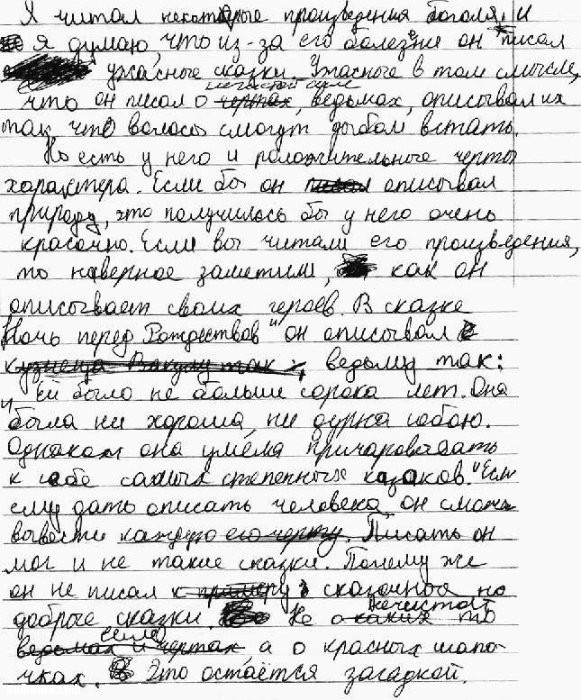 Я читал некоторые произведения Гоголя, и
я думаю, что из-за его болезни он писал
ужасные сказки. Ужасные в том смысле,
нечистой силе
что он писал о чертах, ведьмах, описывал их
так, что волосы смогут дыбом встать.
Но есть у него и положительные черты
характера. Если бы он писал описывал
природу, это получилось бы у него очень
красочно. Если вы читали его произведения,
то наверное заметили, как он
описывает своих героев. В сказке
Ночь перед Рождеством" он описывал
кузнеца Вакулу так, ведьму так:
" Ей было не больше сорока лет. Она
была ни хороша, ни дурна собою.
Однакож она умела причаровывать
к себе самых степенных казаков." Если
ему дать описать человека, он сможет
вывести каждую его черту. Писать он
мог и не такие сказки. Почему же
он не писал к примеру сказочные но
добрые сказки. Не о каких то
нечистой
силе
ведьмах и чертах а о красных шапо-
чках. Это остаётся загадкой.